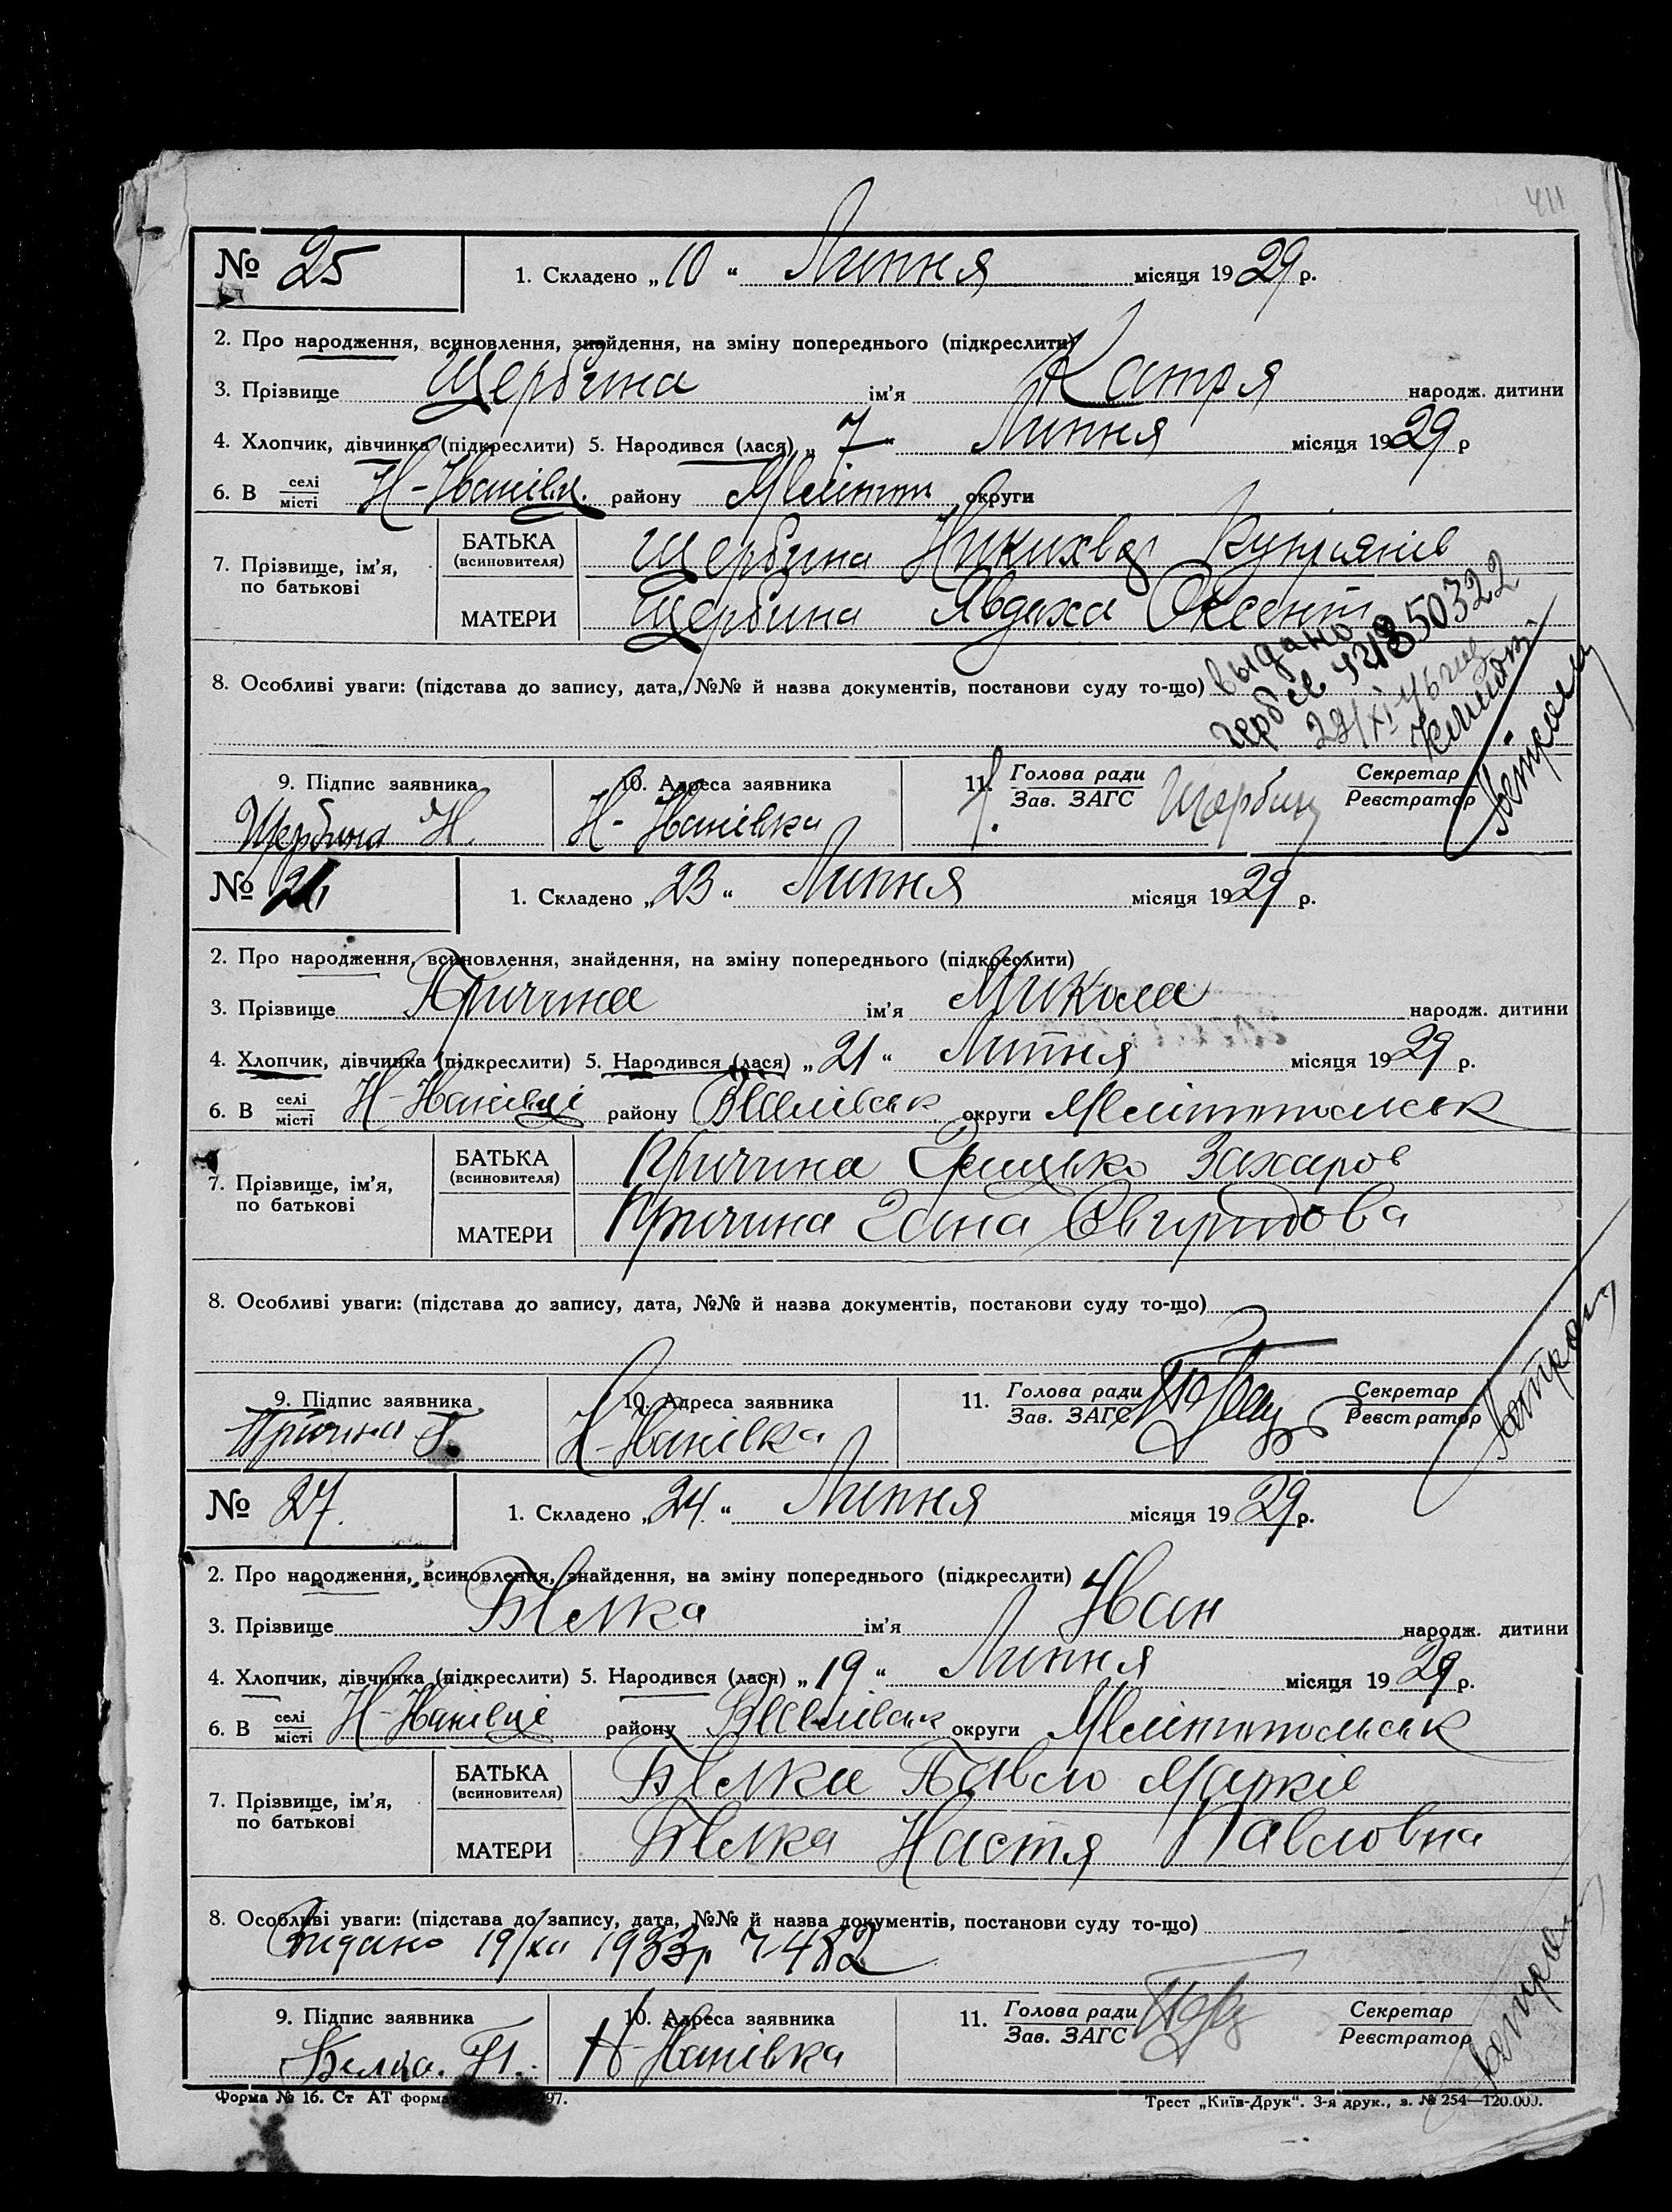 411
№ 25 1. Складено „10“ Липня місяця 1929 р.
2. Про народження, всиновлення, знайдення, на зміну попереднього (підкреслити)
3. Прізвище Щербина ім'я Катря народж. дитини
4. Хлопчик, дівчинка (підкреслити) 5. Народився (лася) „7“ Липня місяця 1929 р
6. В селі/місті Н-Іванівц. району Мелітт округи
7. Прізвище, ім'я, по батькові
БАТЬКА (всиновителя) Щербина Никихвор Купріянів
МАТЕРИ Щербина Явдоха Оксент
8. Особливі уваги: (підстава до запису, дата, №№ й назва документів, постанови суду то-що)
выдано
50322
9. Підпис заявника 10. Адреса заявника 11. Голова ради Секретар
Зав. ЗАГС Реєстратор
Щербина Н. Н-Іванівка Щербину
№ 26 1. Складено „23“ Липня місяця 1929 р.
2. Про народження, всиновлення, знайдення, на зміну попереднього (підкреслити)
3. Прізвище Причина ім'я Микола народж. дитини
4. Хлопчик, дівчинка (підкреслити) 5. Народився (лася) „21“ Липня місяця 1929 р.
6. В селі/місті Н-Іванівці району Веселівськ округи Мелітопольськ
7. Прізвище, ім'я, по батькові
БАТЬКА (всиновителя) Причина Грицько Захаров
МАТЕРИ Причина Ганна
8. Особливі уваги: (підстава до запису, дата, №№ й назва документів, постанови суду то-що)
9. Підпис заявника 10. Адреса заявника 11. Голова ради Секретар
Зав. ЗАГС Реєстратор
Причина Г. Н-Іванівка
№ 27. 1. Складено „24.“ Липня місяця 1929 р.
2. Про народження, всиновлення, знайдення, на зміну попереднього (підкреслити)
3. Прізвище Белка ім'я Іван народж. дитини
4. Хлопчик, дівчинка (підкреслити) 5. Народився (лася) „19“ Липня місяця 1929 р.
6. В селі/місті Н-Іванівці району Веселівськ округи Мелітопольськ
7. Прізвище, ім'я, по батькові
БАТЬКА (всиновителя) Белка Павло Марків
МАТЕРИ Белка Настя Павловна
8. Особливі уваги: (підстава до запису, дата, №№ й назва документів, постанови суду то-що)
Видано 19/XII 1933р 7-482
9. Підпис заявника 10. Адреса заявника 11. Голова ради Секретар
Зав. ЗАГС Реєстратор
Белка. П. Н-Іванівка
Форма № 16. Ст АТ форма 97. Трест „Київ-Друк“. 3-я друк., з. № 254—120.000.